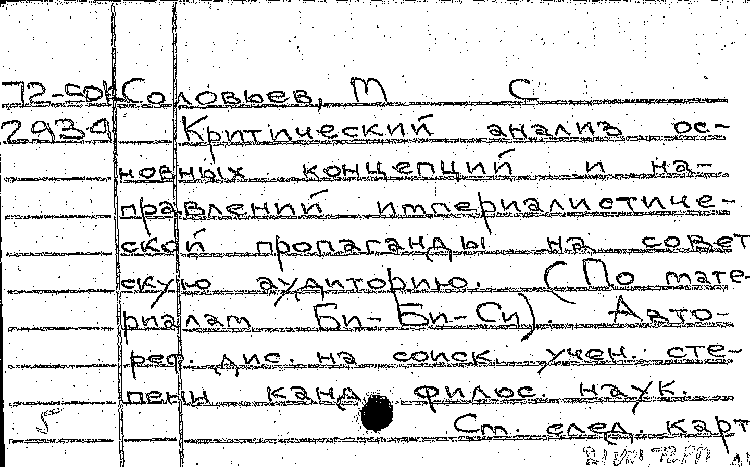 Соловьев, М С
2934 Критический анализ ос-
новных концепций и на-
правлений империалистиче-
ской пропаганды на совет
скую аудиторию. (По мате-
риалам Би-Би-Си). Авто-
реф. дис. на соиск. учен. сте-
пени канд. филос. наук.
5 См. след. карт